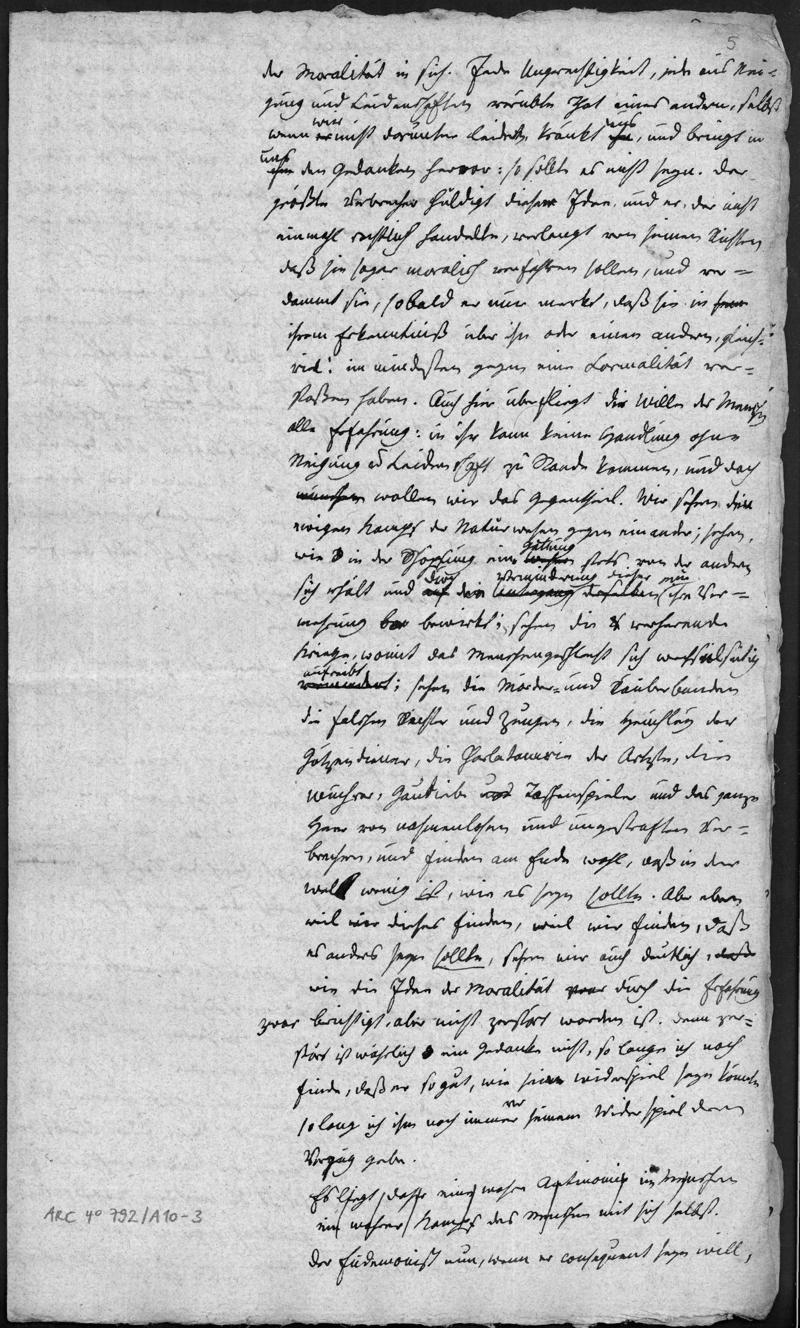 5
der Moralität in sich. Jede Ungerechtigkeit, jede aus Nei=
gung und Leidenschaften verübte That eines andern, selbst
wenn wir nicht darunter leiden kränkt uns, und bringt in
uns den Gedanken hervor: so sollte es nicht seyn. Der
größte Verbrecher huldigt dieser Idee. und er, der nicht
einmahl rechtlich handelte, verlangt von seinen Richtern
daß sie sogar moralisch verfahren sollen, und ver=
dammt sie, sobald er nur merkt, daß sie in
ihrem Erkenntniß über ihn oder einen andern, gleich=
viel! im mindesten gegen eine Formalität ver=
stoßen haben. Auch hier überfliegt der Wille des Menschen
alle Erfahrung: in ihr kann keine Handlung ohne
Neigung u Leidenschaft zu Stande kommen, und doch
wünschen wollen wir das Gegentheil. Wir sehen den
ewigen Kampf der Naturwesen gegen einander; sehen,
wie in der Schöpfung eine Gattung stets von der andern
sich erhält und durch Verminderung dieser nur ihre Ver=
mehrung bewirkt; sehen die verherende
Kriege, womit das Menschengeschlecht sich wechselseitig
aufreibt; sehen die Mörder- und Räuberbanden
die falschen Richter und Zeugen, die Heuchley der
Götzendiener, die Charlatanerie der Aertzte, die
Wuchrer, Gaudiebe und Taschenspieler und das ganze
Heer von nahmenlosen und ungestraften Ver=
brechern, und finden am Ende wohl, daß in der
Welt wenig ist, wie es seyn sollte. Aber eben
weil wir dieses finden, weil wir finden, daß
es anders seyn sollte, sehen wir auch deutlich, daß
wie die Idee der Moralität zwar durch die Erfahrung
zwar berichtigt, aber nicht zerstört worden ist. Denn zer=
stört ist wahrlich ein Gedanke nicht, so lange ich noch
finde, daß er so gut, wie sein Widerspiel seyn könnte
so lang ich ihm noch immer vor seinem Widerspiel den
Vorzug gebe.
Es liegt daher eine wahre Antinomie im Menschen
ein wahrer Kampf des Menschen mit sich selbst.
Der Eudemonist nun, wenn er consequent seyn will,
ARC 4° 792/A10-3